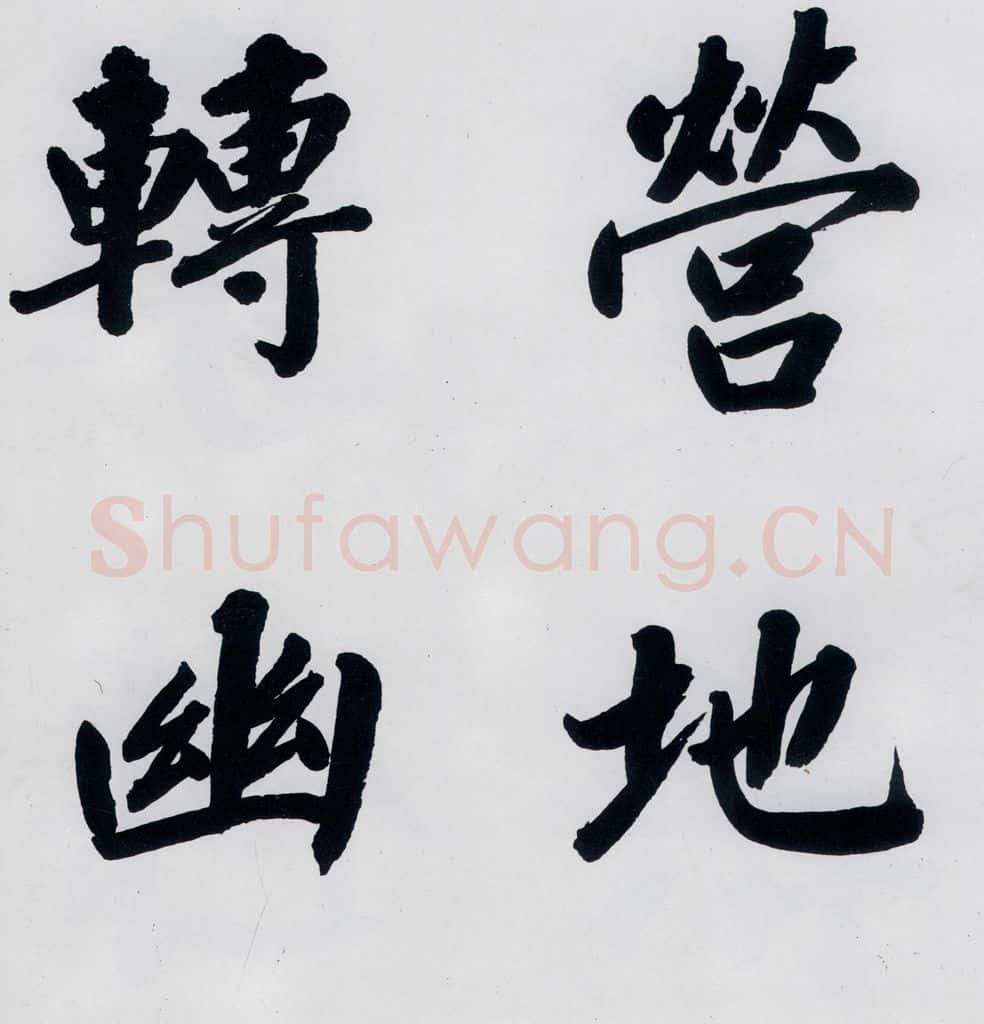 營地
轉幽
Shufawang.CN